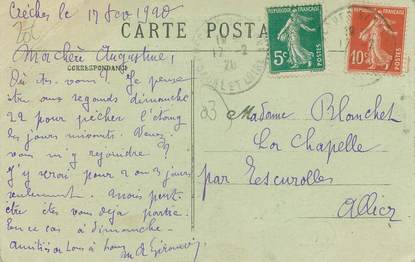 Crèches le 17 fev 1920
CARTE POSTALE
Ma chère Augustine,
CORRESPONDANCE
Où êtes vous? Je pense
être aux regonds dimanche
22 pour pêcher l'étang
les jours suivants. Venez
vous m'y rejoindre?
J'y serai pour 2 ou 3 jours
seulement. Mais peut
être êtes vous deja partie.
En ce cas à dimanche.
Amitiés à tous
RÉPUBLIQUE FRANÇAISE
5c
POSTES
RÉPUBLIQUE FRANÇAISE
10c
POSTES
17-2
20
Madame Blanchet
La Chapelle
par Escurolles
Allier